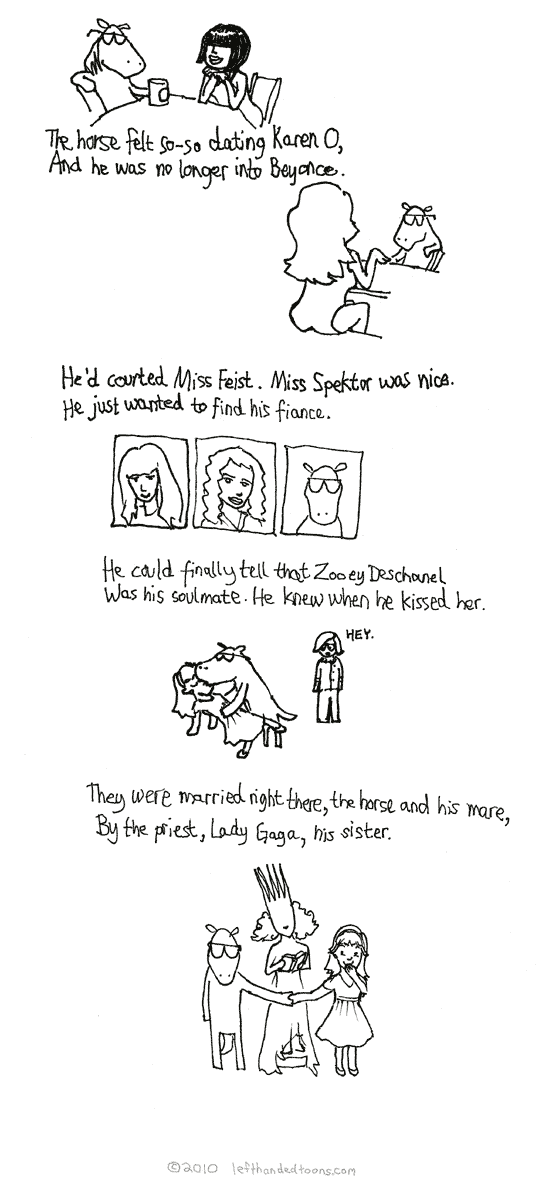 The horse felt so-so dating Karen O,
And he was no longer into Beyonce.
He'd courted Miss Feist. Miss Spektor was nice.
He just wanted to find his fiance.
He could finally tell that Zooey Deschanel
Was his soulmate. He knew when he kissed her.
HEY.
They were married right there, the horse and his mare,
By the priest, Lady Gaga, his sister.
©2010 lefthandedtoons.com